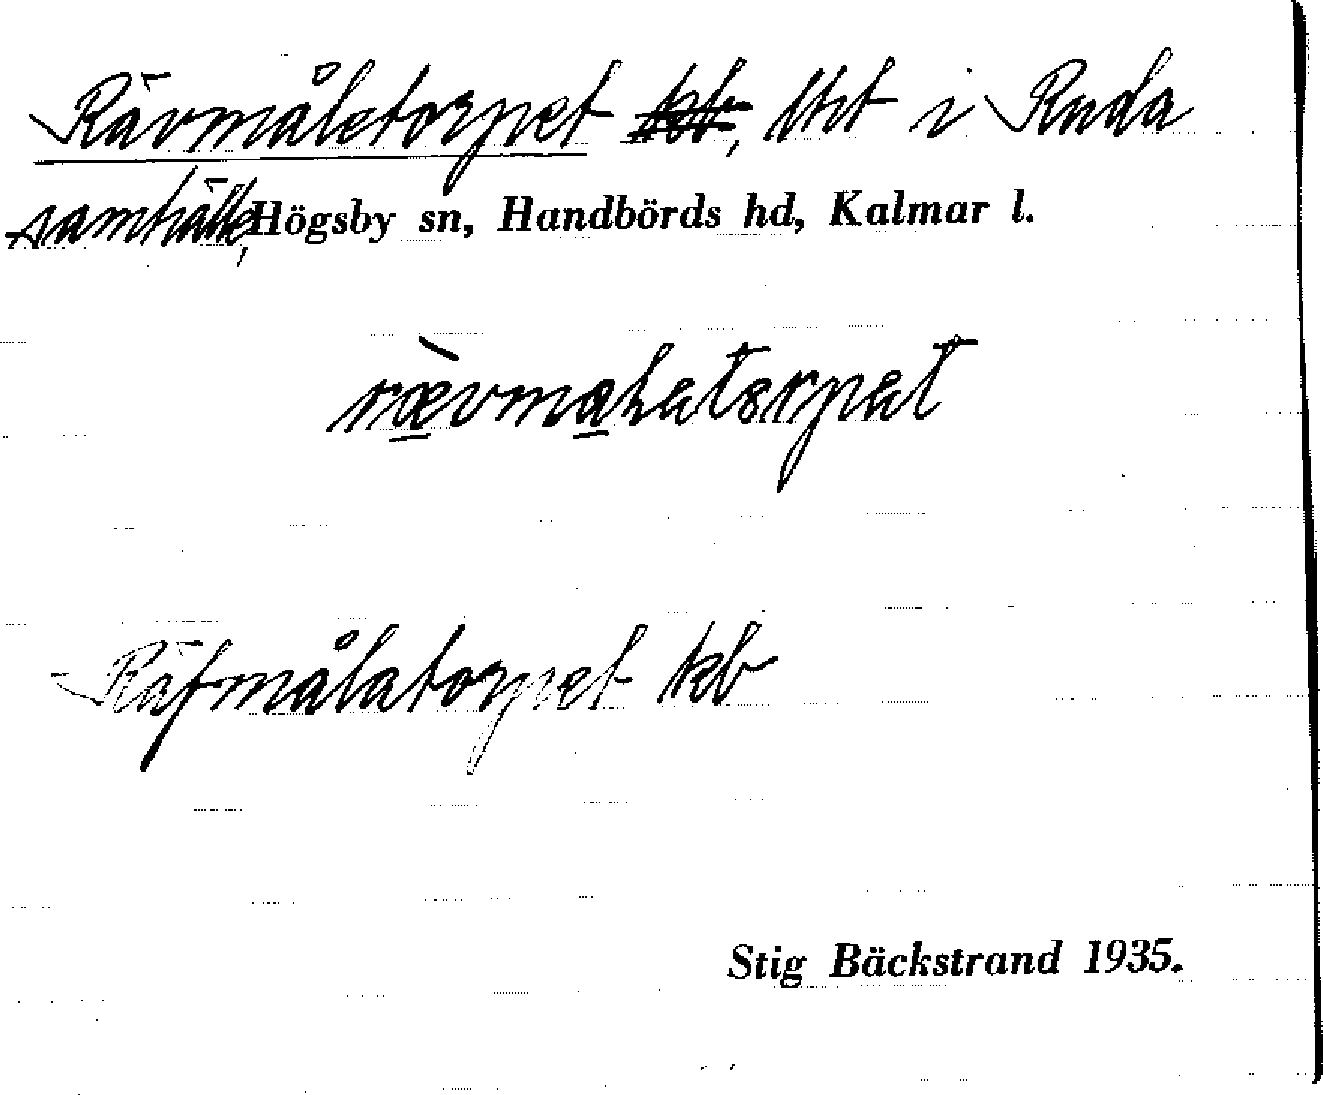 Rävmåletorpet kb, lht i Ruda
samhälle, Högsby sn, Handbörds hd, Kalmar l.
rævmaletorpet
Räfmålatorpet kb
Stig Bäckstrand 1935.